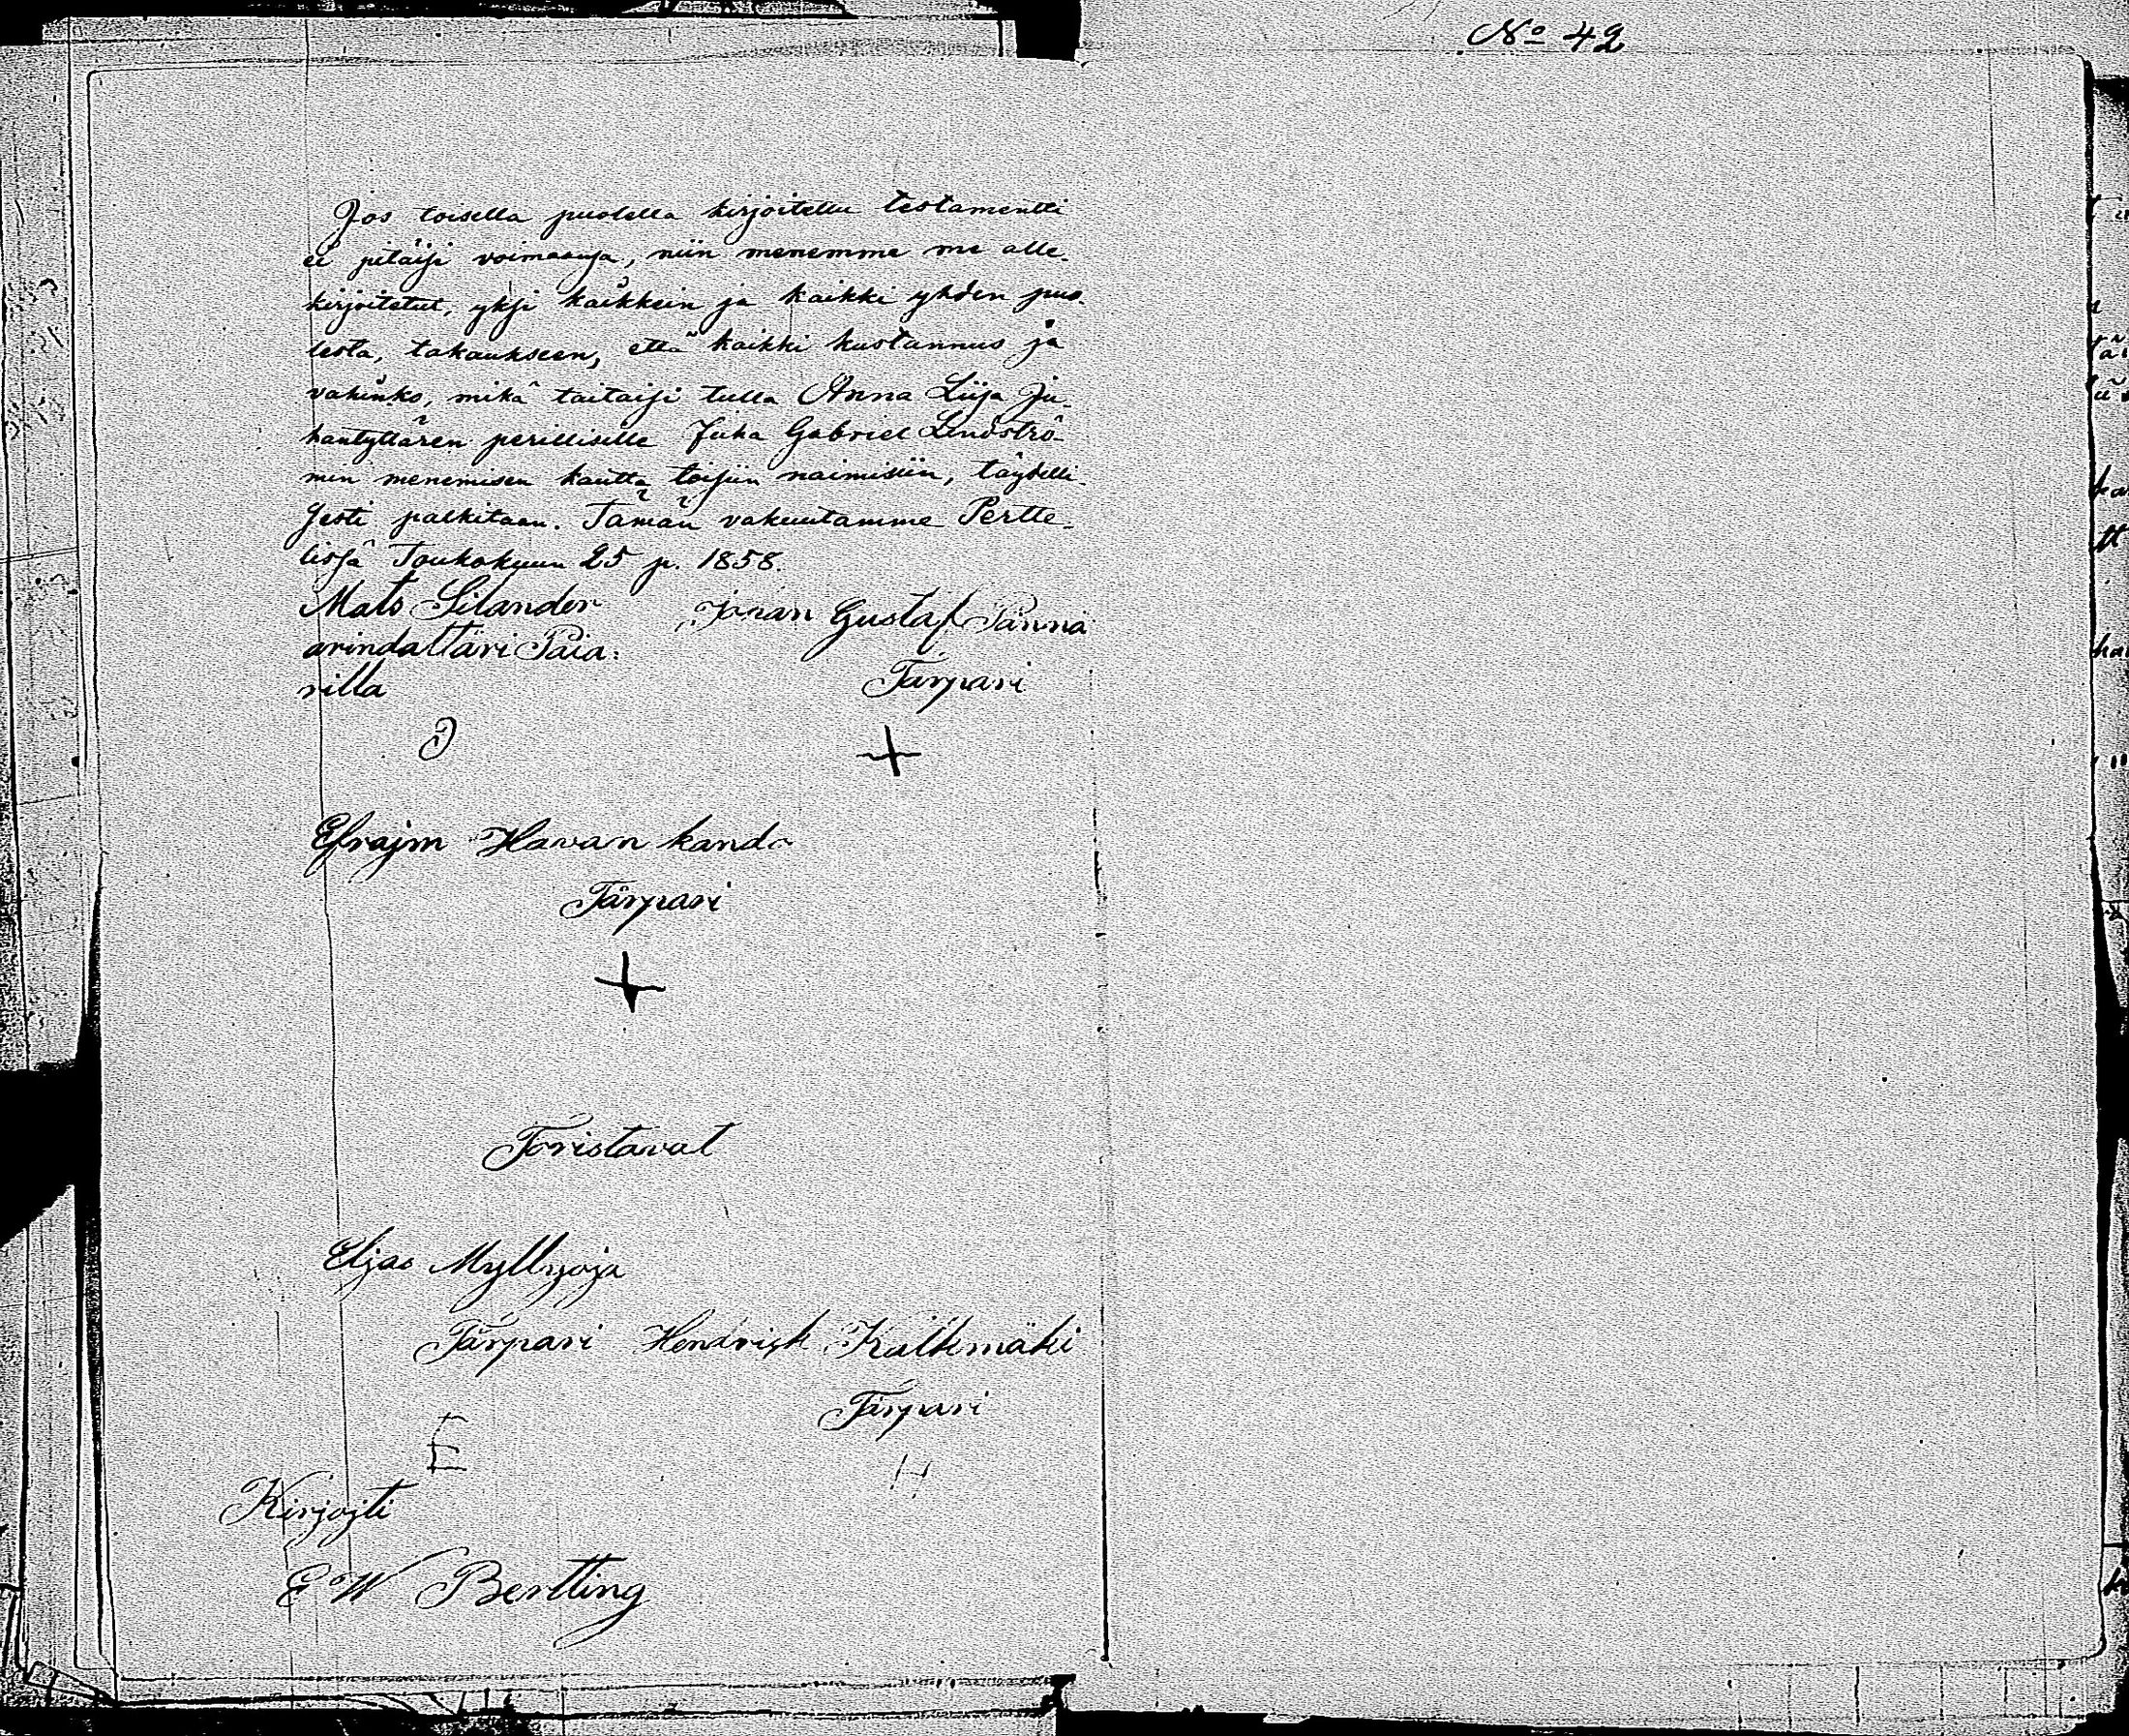 No 42
Jos toisella puolella kirjoitettu testamentti
ei pitäisi voimaansa, niin menemme me alle-
kirjoitetut, yksi kaikkein ja kaikki yhden puo-
lesta, takaukseen, että kaikki kustannus ja
vahinko, mikä taitaisi tulla Anna Liisa Ju-
hantyttären perillisille Juha Gabriel Lindströ-
min menemisen kautta toisiin naimisiin, täydelli-
sesti palkitaan. Tämän vakuutamme Pertte-
lissä Toukokuun 25 p. 1858.
Mats Silander Johan Gustaf Pännä
arindattäri Päiä:
rillä Tärpari
Efrajm Havan kanda
Tärpari
Toristavat
Eljas Myllyoja
Tärpari Hendrick Kälkmäki
Tärpari
E H
Kirjojti
E W Bertting